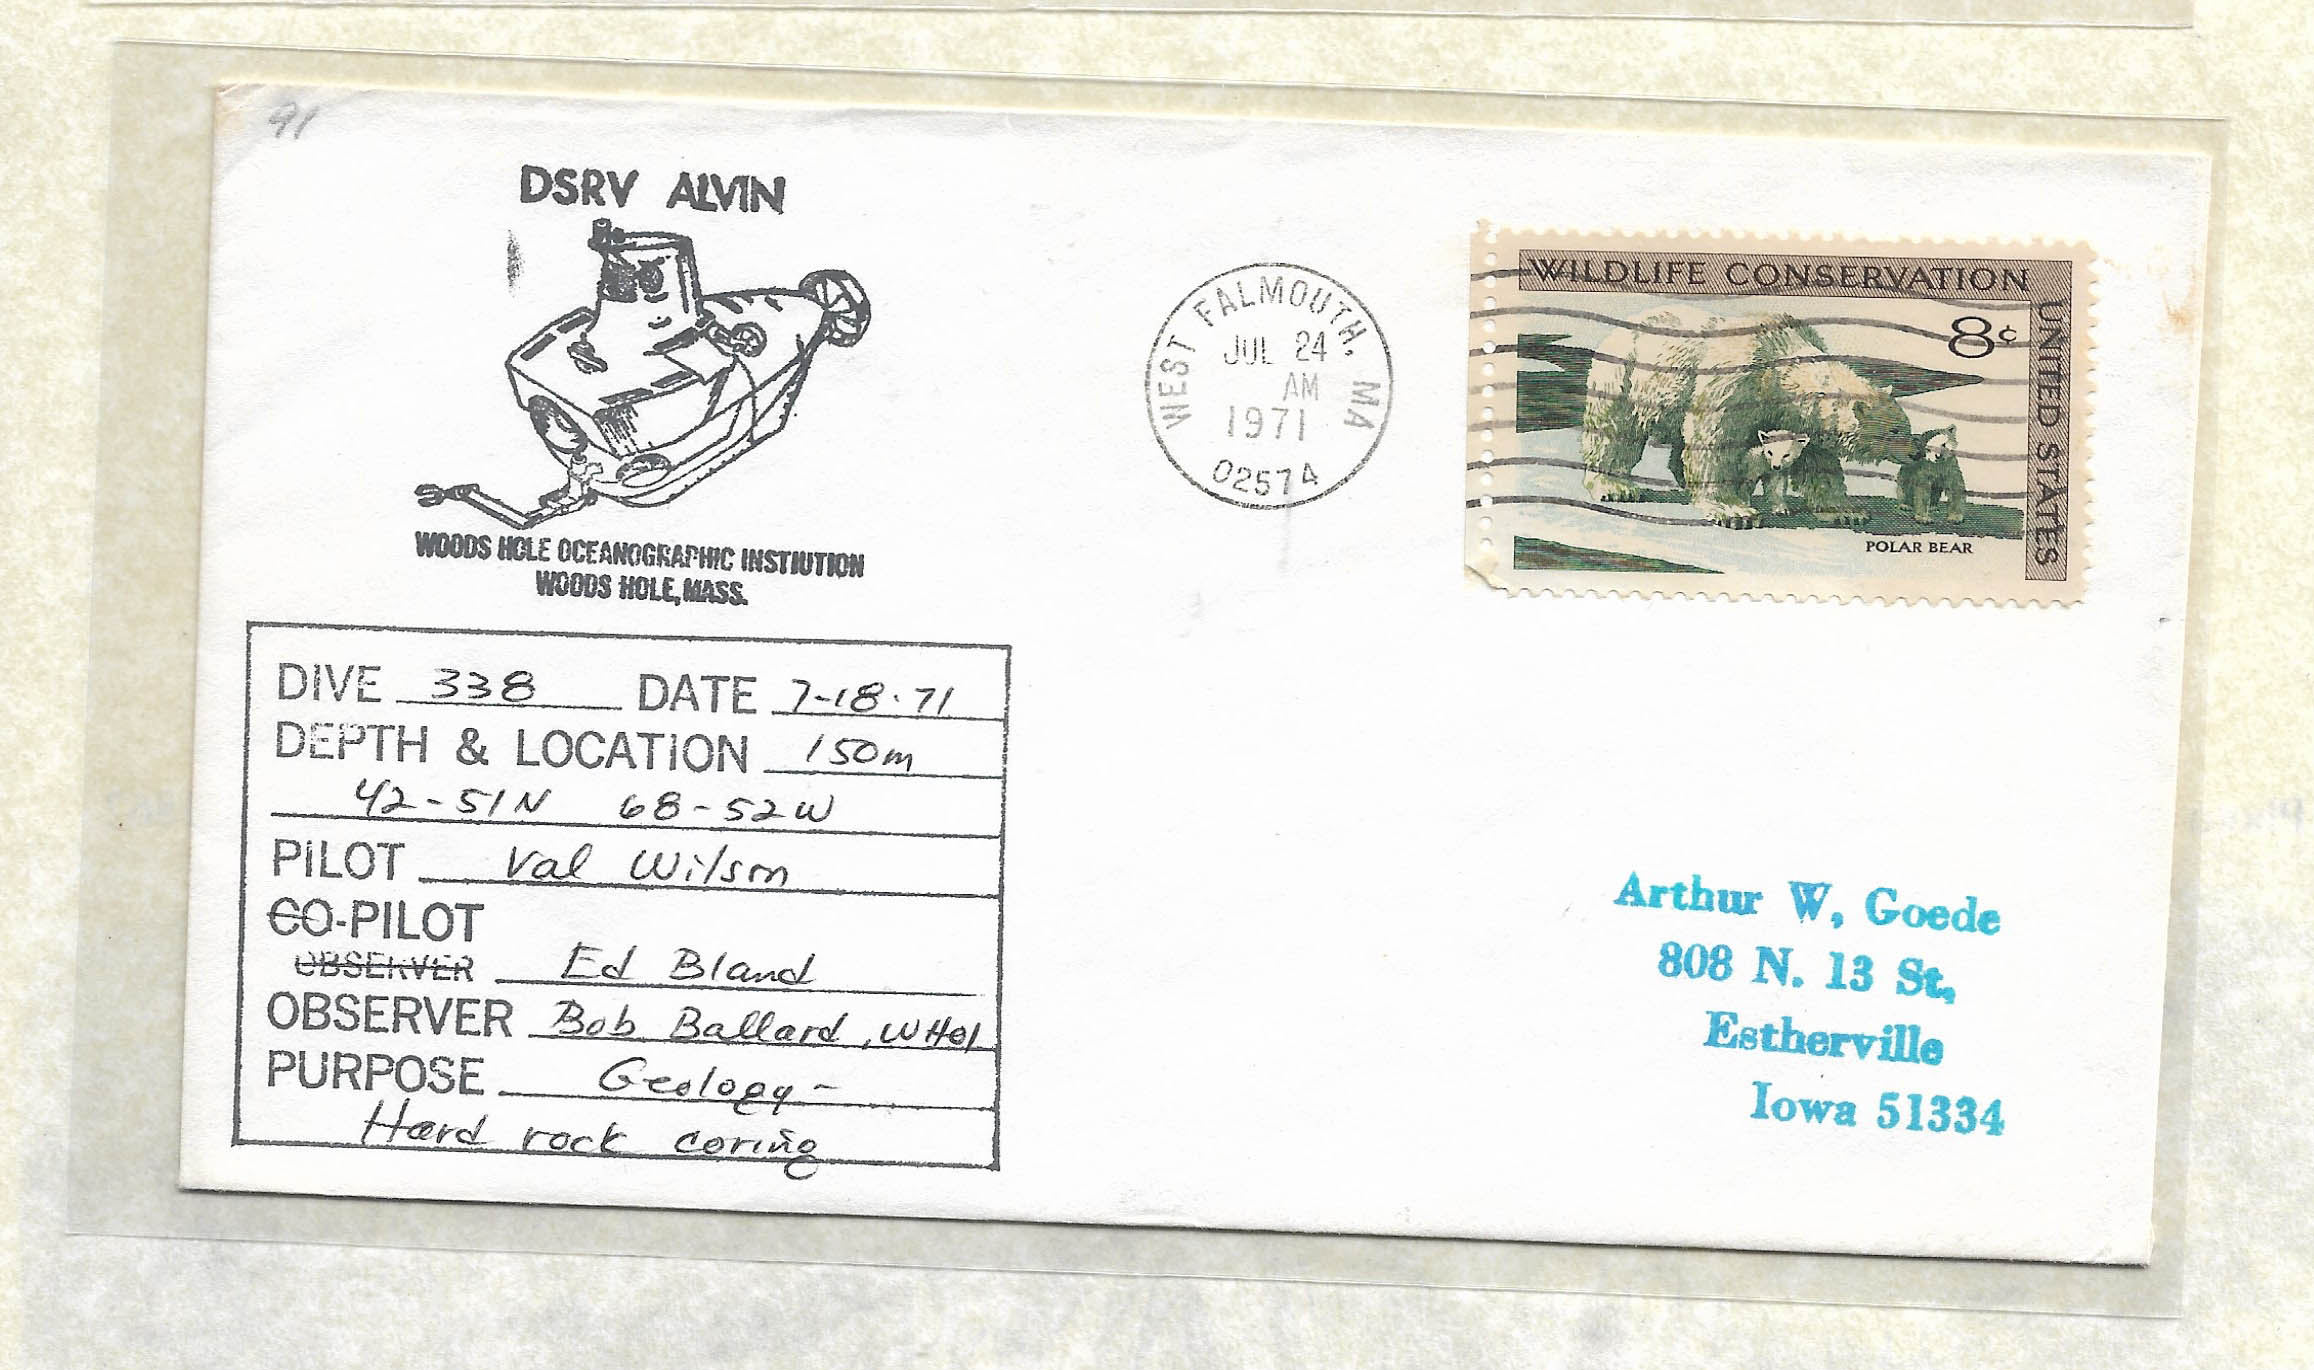 91
DSRV ALVIN
WOODS HOLE OCEANOGRAPHIC INSTIUTION
WOODS HOLE, MASS.
WEST FALMOUTH, MA
JUL 24
AM
1971
02574
WILDLIFE CONSERVATION
UNITED STATES
8¢
POLAR BEAR
DIVE 338 DATE 7-18-71
DEPTH & LOCATION 150m
42-51N 68-52W
PILOT Val Wilson
CO-PILOT
OBSERVER Ed Bland
OBSERVER Bob Ballard, WHOI
PURPOSE Geology -
Hard rock coring
Arthur W. Goede
808 N. 13 St.
Estherville
Iowa 51334